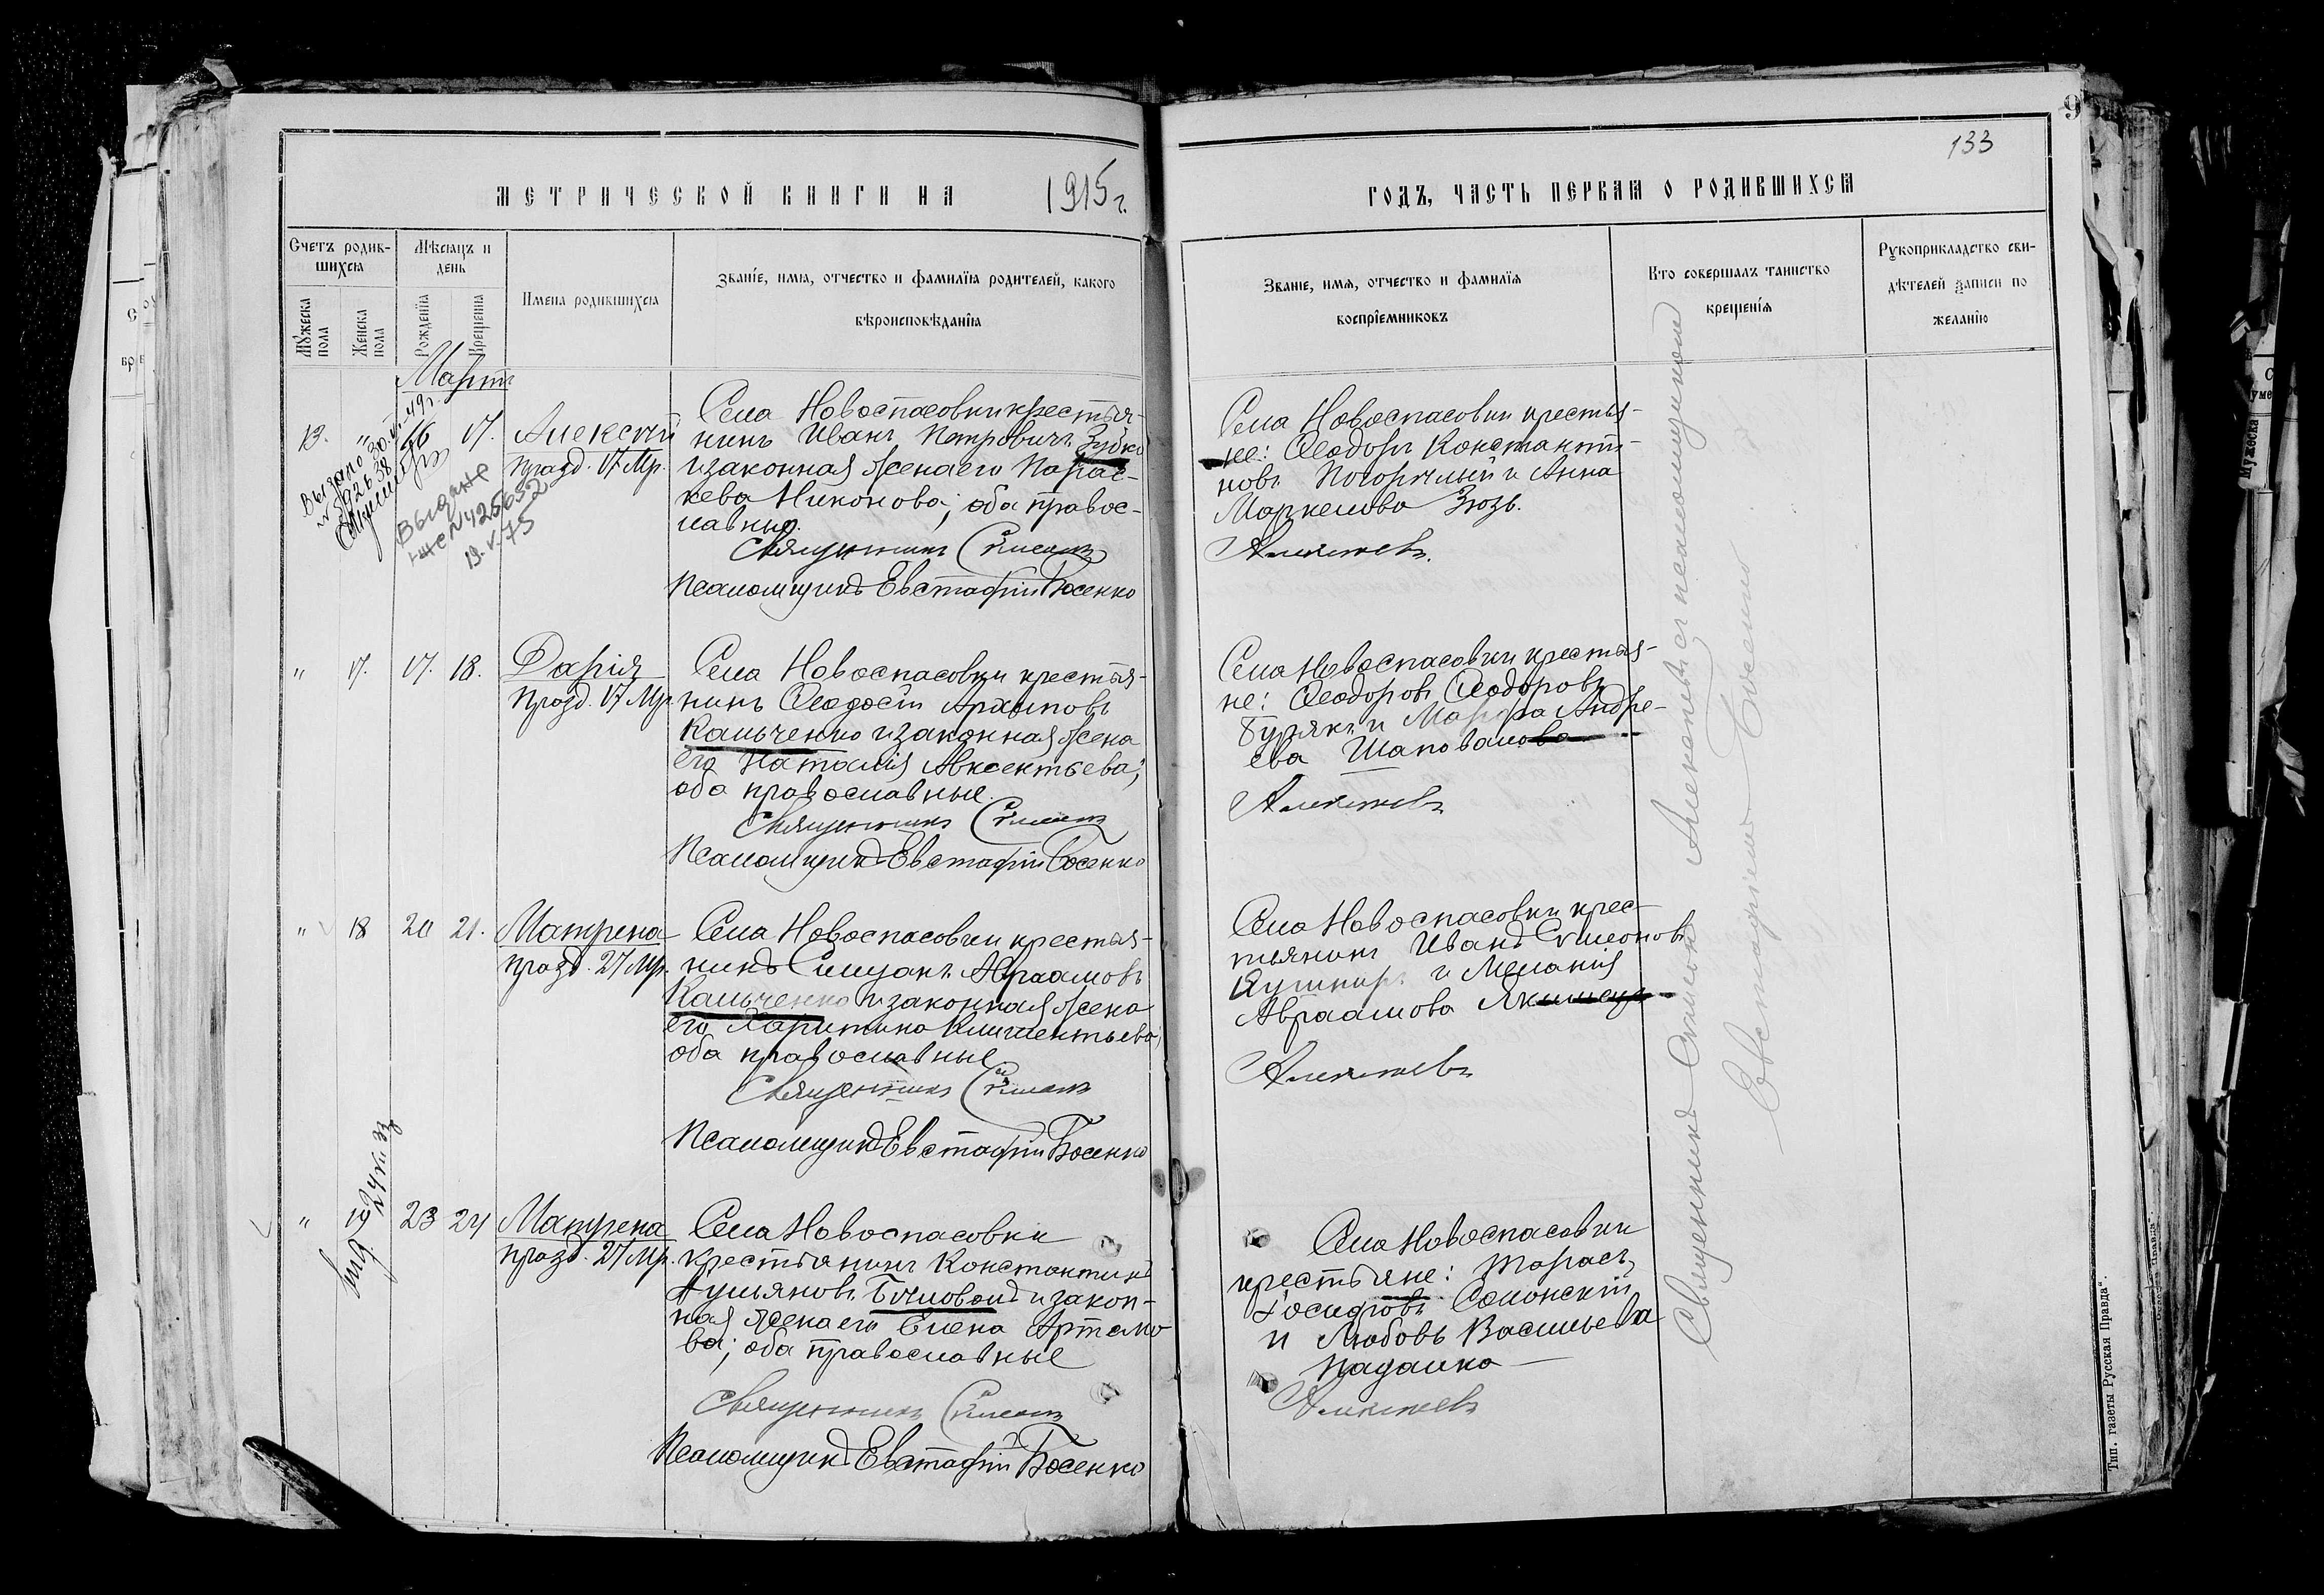 9
133
МЕТРИЧЕСКОЙ КНИГИ НА 1915 г.
ГОДЪ, ЧАСТЬ ПЕРВАЯ О РОДИВШИХСЯ
Счетъ родив-
шихся
Мужеска
пола
Женска
пола
Мѣсяцъ и
день
Рожденїя
Крещенїя
Имена родившихся
Званїе, имя, отчество и фамилїя родителей, какого
вѣроисповѣданїя
Званїе, имя, отчество и фамилїя
воспрїемниковъ
Кто совершалъ таинство
крещенїя
Рукоприкладство сви-
дѣтелей записи по
желанїю
Мартъ
13. " 16 17. Алексѣй
празд. 17 Мр.
Выдано 30. 49г.
Выдано
19.V.75
Села Новоспасовки крестья-
нинъ Иванъ Петровичъ Зубко
и законная жена его Парас-
кева Никонова; оба правос-
лавные.
Священникъ Стмеонъ
Псаломщикъ Евстафій Босенко
Села Новоспасовки крестья-
не: Ѳеодоръ Константи-
новъ Погорѣлый и Анна
Маркелова Зюзь.
Алексѣевъ.
" 17. 17. 18. Дарія
Празд. 17 Мр.
Села Новоспасовки крестья-
нинъ Ѳеодосій Архиповъ
Кальченко и законная жена
его Наталія Авксентьева;
оба православные.
Священникъ
Псаломщикъ Евстафій Босенко
Села Новоспасовки крестья-
не: Ѳеодоровъ Ѳеодоровъ
Бурякъ и Марѳа Андре-
ева Шаповалова
Алексѣевъ
" 18 20 21. Матрена
празд. 27 Мр.
Села Новоспасовки крестья-
нинъ Авраамовъ
Кальченко и законная жена
его Харитина Климентьева;
оба православные
Священникъ
Псаломщикъ Евстафій Босенко
Села Новоспасовки крес-
тьянинъ Иванъ Симеоновъ
Кушниръ и Меланія
Авраамова
Алексѣевъ
" 19 23 24 Матрена
празд. 27 Мр.
Села Новоспасовки
крестьянинъ Константинъ
Лукьяновъ и закон-
ная жена его Елена Артемо
ва; оба православные
Священникъ
Псаломщикъ Евстафій Босенко
Села Новоспасовки
крестьяне: Тарасъ
Іосифовъ Солонскій
и Любовь Васильева
Падалка
Алексѣевъ
Священникъ Симеонъ Алексѣевъ съ псаломщикомъ
Евстафіемъ Босенко
Тип. газеты „Русская Правда“.